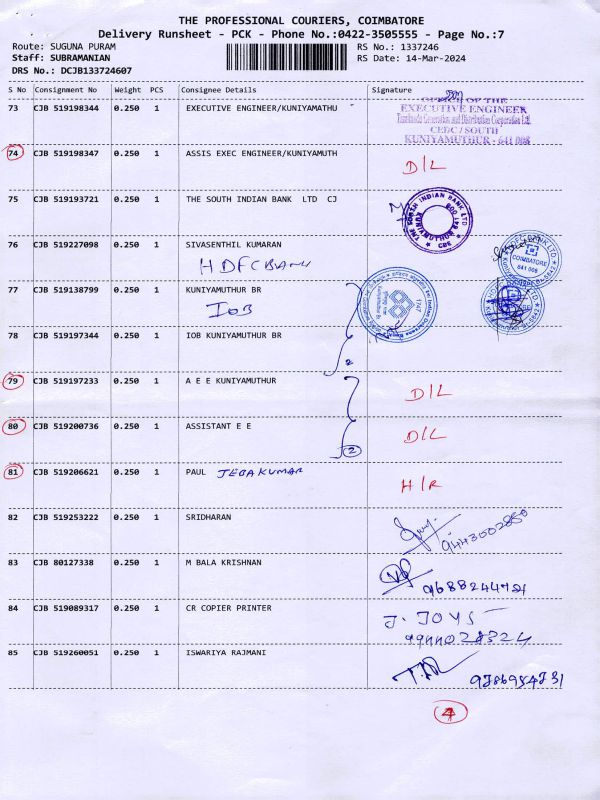 THE PROFESSIONAL COURIERS, COIMBATORE
Delivery Runsheet - PCK - Phone No.:0422-3505555 - Page No.:7
Route: SUGUNA PURAM
RS No.: 1337246
Staff: SUBRAMANIAN
RS Date: 14-Mar-2024
DRS No.: DCJB133724607
S No Consignment No Weight PCS Consignee Details Signature
73 CJB 519198344 0.250 1 EXECUTIVE ENGINEER/KUNIYAMATHU
OFFICE OF THE
EXECUTIVE ENGINEER
Tamilnadu Generation and Distribution Corporation Ltd.
CEDC / SOUTH
KUNIYAMUTHUR - 641 008
74 CJB 519198347 0.250 1 ASSIS EXEC ENGINEER/KUNIYAMUTH D/L
75 CJB 519193721 0.250 1 THE SOUTH INDIAN BANK LTD CJ
THE SOUTH INDIAN BANK LTD
KUNIYAMUTHUR 641 008
CBE
76 CJB 519227098 0.250 1 SIVASENTHIL KUMARAN
HDFC BANK
COIMBATORE
641 008
77 CJB 519138799 0.250 1 KUNIYAMUTHUR BR
IOB
1747
78 CJB 519197344 0.250 1 IOB KUNIYAMUTHUR BR
2
79 CJB 519197233 0.250 1 A E E KUNIYAMUTHUR D/L
80 CJB 519200736 0.250 1 ASSISTANT E E D/L
2
81 CJB 519206621 0.250 1 PAUL JEBAKUMAR H/R
82 CJB 519253222 0.250 1 SRIDHARAN
9443002850
83 CJB 80127338 0.250 1 M BALA KRISHNAN
84 CJB 519089317 0.250 1 CR COPIER PRINTER J. JOYS
9944028324
85 CJB 519260051 0.250 1 ISWARIYA RAJMANI
4